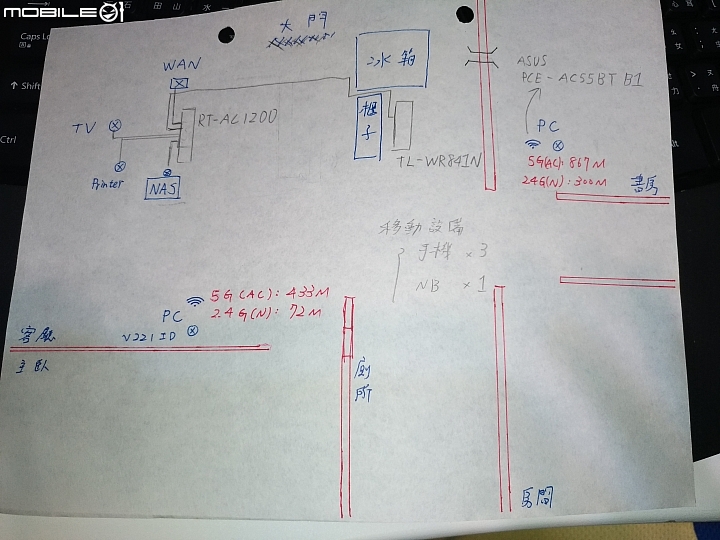 MOBILE01
Caps Lo
Shift
Ctrl
大門
WAN
冰箱
ASUS
PCE-AC55BT B1
RT-AC1200
TV
櫃子
PC
TL-WR841N
5G(AC): 867M
2.4G(N): 300M
書房
Printer
NAS
移動設備
手機 ×3
NB ×1
5G(AC): 433M
2.4G(N): 72M
PC
V221ID
客廳
主臥
廁所
房間